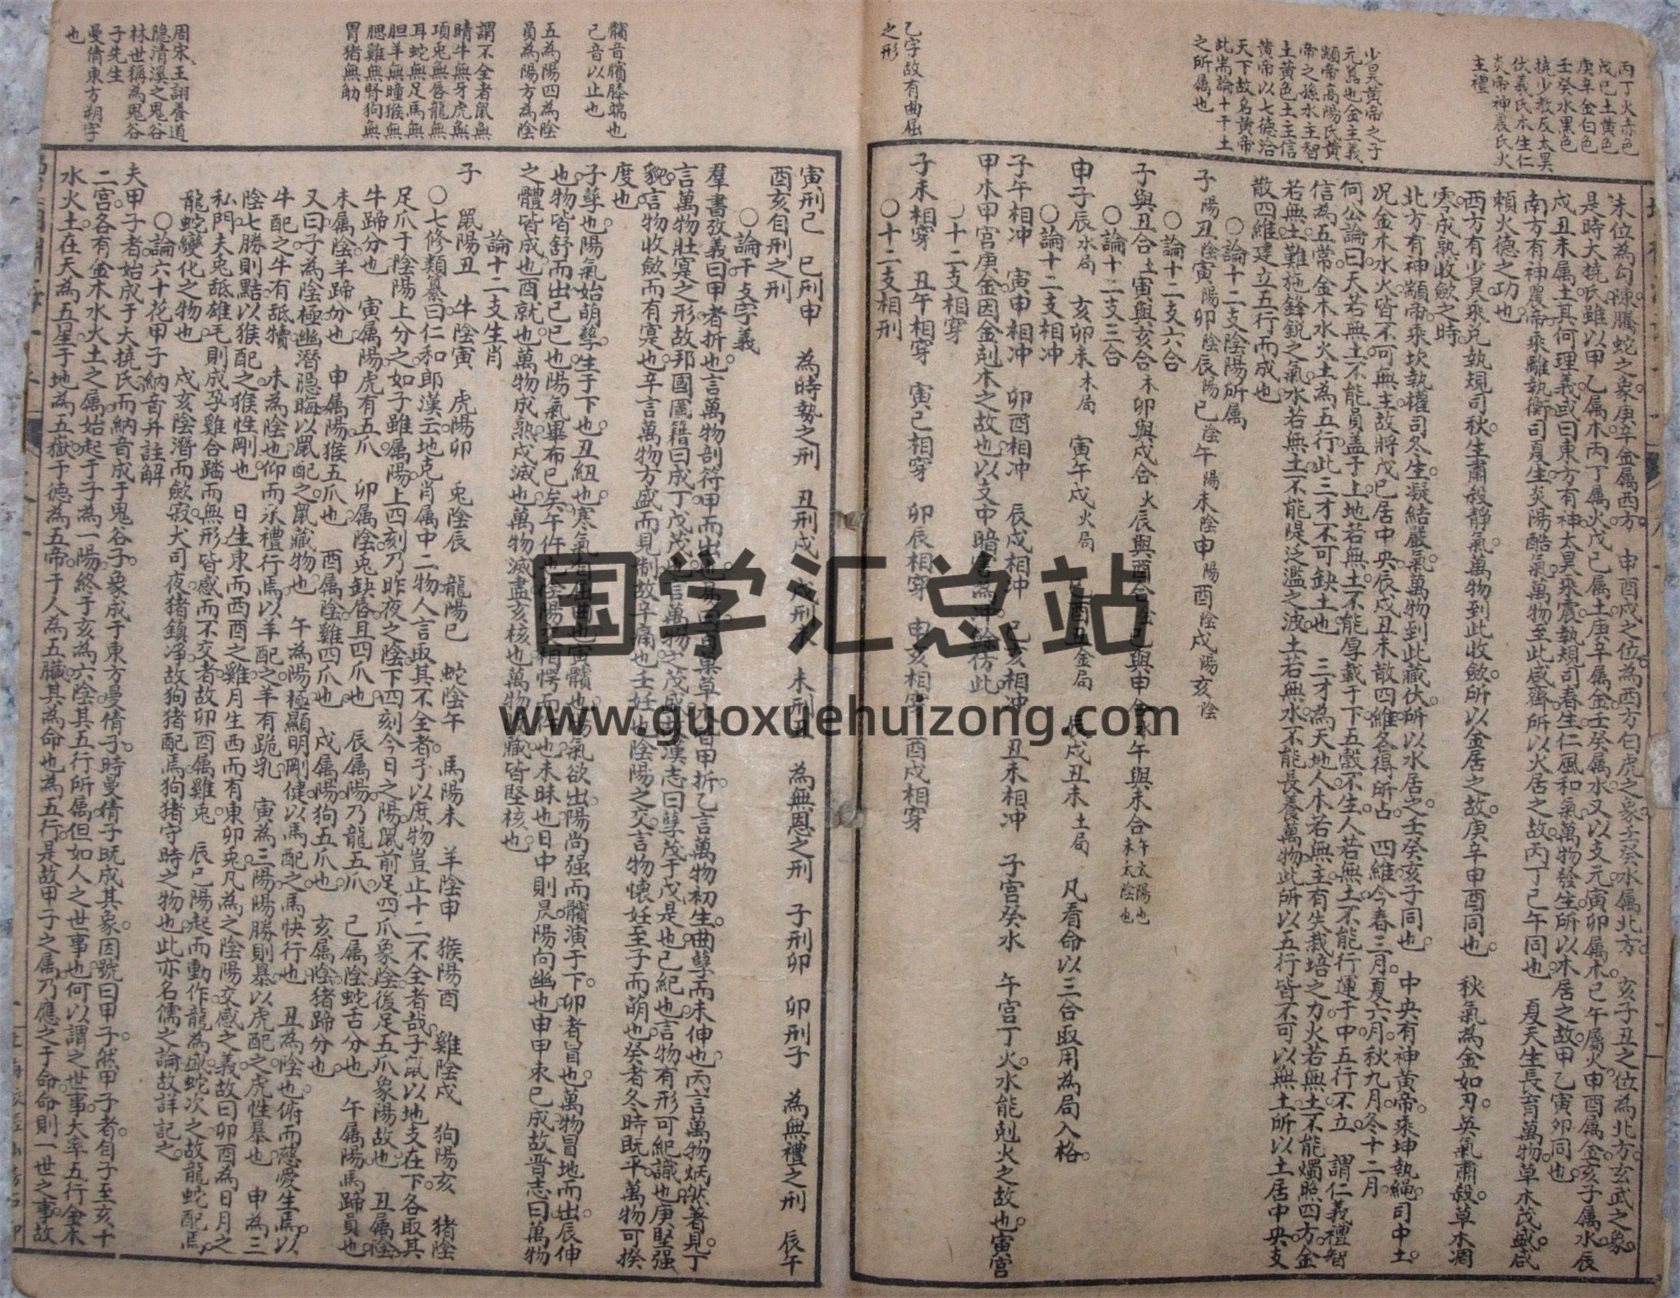 丙丁火赤色
戊巳土黃色
庚辛金白色
壬癸水黑色
伏義氏木生仁
炎帝神農氏火
主禮
少昊黃帝之子
元囂也金主義
顓帝高陽氏黃
帝之孫水主智
土黃色土主信
黃帝以七德治
天下故名黃帝
此耑論十干土
之所屬也
乙字故有曲屈
之形
未位為勾陳騰蛇之象庚辛金屬西方 申酉戌之位為西方白虎之象壬癸水屬北方 亥子丑之位為北方玄武之象
是時大撓氏雖以甲乙屬木丙丁屬火戊己屬土庚辛屬金壬癸屬水又以支元寅卯屬木巳午屬火申酉屬金亥子屬水辰
戌丑未屬土其何理義或曰東方有神太昊乘震執規司春生仁風和氣萬物發生所以木居之故甲乙寅卯同也
南方有神農帝乘離執衡司夏生炎陽酷氣萬物至此咸齊所以火居之故丙丁巳午同也 夏天生長育萬物草木茂盛咸
賴火德之功也
西方有少昊乘兌執規司秋生肅殺靜氣萬物到此收斂所以金居之故庚辛申酉同也 秋氣為金如刃英氣肅殺草木凋
零成熟收斂之時
北方有神顓帝乘坎執權司冬生凝結嚴氣萬物到此藏伏所以水居之壬癸亥子同也 中央有神黃帝乘坤執繩司中土
況金木水火皆不可無主故將戊巳居中央辰戌丑未散四維各得所占 四維今春三月夏六月秋九月冬十二月
何公論曰天若無土不能員盖于上地若無土不能厚載于下五穀不生人若無土不能行運于中五行不立 謂仁義禮智
信為五常金木水火土為五行此三才不可缺土也 三才為天地人木若無土有失栽培之力火若無土不能燭照四方金
若無土難施鋒銳之氣水若無土不能隄泛濫之波土若無水不能長養萬物此所以五行皆不可以無土所以土居中央支
散四維建立五行而成也
○論十二支陰陽所屬
子陽丑陰寅陽卯陰辰陽巳陰午陽未陰申陽酉陰戌陽亥陰
○論十二支六合
子與丑合土寅與亥合木卯與戌合火辰與酉合金巳與申合水午與未合午太陽也未太陰也
○論十二支三合
申子辰水局 亥卯未木局 寅午戌火局 巳酉丑金局 辰戌丑未土局 凡看命以三合取用為局入格
○論十二支相冲
子午相冲 寅申相冲 卯酉相冲 辰戌相冲 巳亥相冲 丑未相冲 子宮癸水 午宮丁火水能剋火之故也寅宮
甲木申宮庚金因金剋木之故也以支中暗名為冲餘仿此
○十二支相穿
子未相穿 丑午相穿 寅巳相穿 卯辰相穿 申亥相穿 酉戌相穿
○十二支相刑
髕音臏滕端也
己音以止也
五為陽四為陰
員為陽方為陰
謂不全者鼠無
睛牛無牙虎無
項兎無唇龍無
耳蛇無足馬無
胆羊無瞳猴無
腮雞無腎狗無
胃猪無觔
周宋王詡養道
隐清溪之鬼谷
林世稱為鬼谷
子先生
曼倩東方朔字
也
寅刑已 巳刑申 為時勢之刑 丑刑戌 戌刑未 未刑丑 為無恩之刑 子刑卯 卯刑子 為無禮之刑 辰午
酉亥自刑之刑
○論干支字義
羣書攷義曰甲者折也言萬物剖符甲而出也
言萬物壯寔之形故邦國圖籍曰成丁戊茂也言萬物之茂盛漢志曰孽茂于戊是也己紀也言物有形可紀識也庚堅強
貌言物收斂而有寔也辛言萬物方盛而見制故辛痛也壬妊也陰陽之交言物懷妊至子而萌也癸者冬時既平萬物可揆
度也
子孽也陽氣始萌孽生于下也丑紐也寒氣自屈曲也寅髕也陽氣欲出陽尚强而髕演于下卯者冒也萬物冒地而出辰伸
也物皆舒而出已已也陽氣畢布已矣午仵也陰陽交相愕而仵也未昧也日中則昃陽向幽也申申束已成故晋志曰萬物
之體皆成也酉就也萬物成熟戌滅也萬物滅盡亥核也萬物收藏皆堅核也
論十二支生肖
子 鼠陽丑 牛陰寅 虎陽卯 兎陰辰 龍陽巳 蛇陰午 馬陽未 羊陰申 猴陽酉 雞陰戌 狗陽亥 猪陰
○七修類纂曰仁和郎漢云地支肖属中二物人言取其不全者予以庶物豈止十二不全者哉予鼠以地支在下各取其
足爪于陰陽上分之如子雖属陽上四刻乃昨夜之陰下四刻今日之陽鼠前足四爪象陰後足五爪象陽故也 丑属陰
牛蹄分也 寅属陽虎有五爪 卯属陰兎缺唇且四爪也 辰属陽乃龍五爪 巳属陰蛇舌分也 午属陽馬蹄員也
未属陰羊蹄分也 申属陽猴五爪也 酉属陰雞四爪也 戌属陽狗五爪也 亥属陰猪蹄分也
又曰子為陰極幽潜隠晦以鼠配之鼠藏物也 午為陽極顯明剛健以馬配之馬快行也 丑為陰也俯而慈愛生焉以
牛配之牛有舐犢 未為陰也仰而承禮行焉以羊配之羊有跪乳 寅為三陽陽勝則暴以虎配之虎性暴也 申為三
陰七勝則黠以猴配之猴性剛也 日生東而西酉之雞月生西而有東卯兎凡為之陰陽交感之義故曰卯酉為日月之
私門夫兎舐雄毛則成孕雞合踏而無形皆感而不交者故卯酉属雞兎 辰巳陽起而動作龍為盛蛇次之故龍蛇配焉
龍蛇變化之物也 戌亥陰潛而斂寂犬司夜猪鎮净故狗猪配焉狗猪守時之物也此亦名儒之論故詳記之
○論六十花甲子納音并註解
夫甲子者始成于大撓氏而納音成于鬼谷子象成于東方曼倩子時曼倩子既成其象因號曰甲子然甲子者自子至亥十
二宮各有金木水火土之屬始起于子為一陽終于亥為六陰其五行所屬但如人之世事也何以謂之世事大率五行金木
水火土在天為五星于地為五嶽于德為五帝于人為五臟其為命也為五行是故甲子之屬乃應之于命命則一世之事故
国学汇总站
www.guoxuehuizong.com